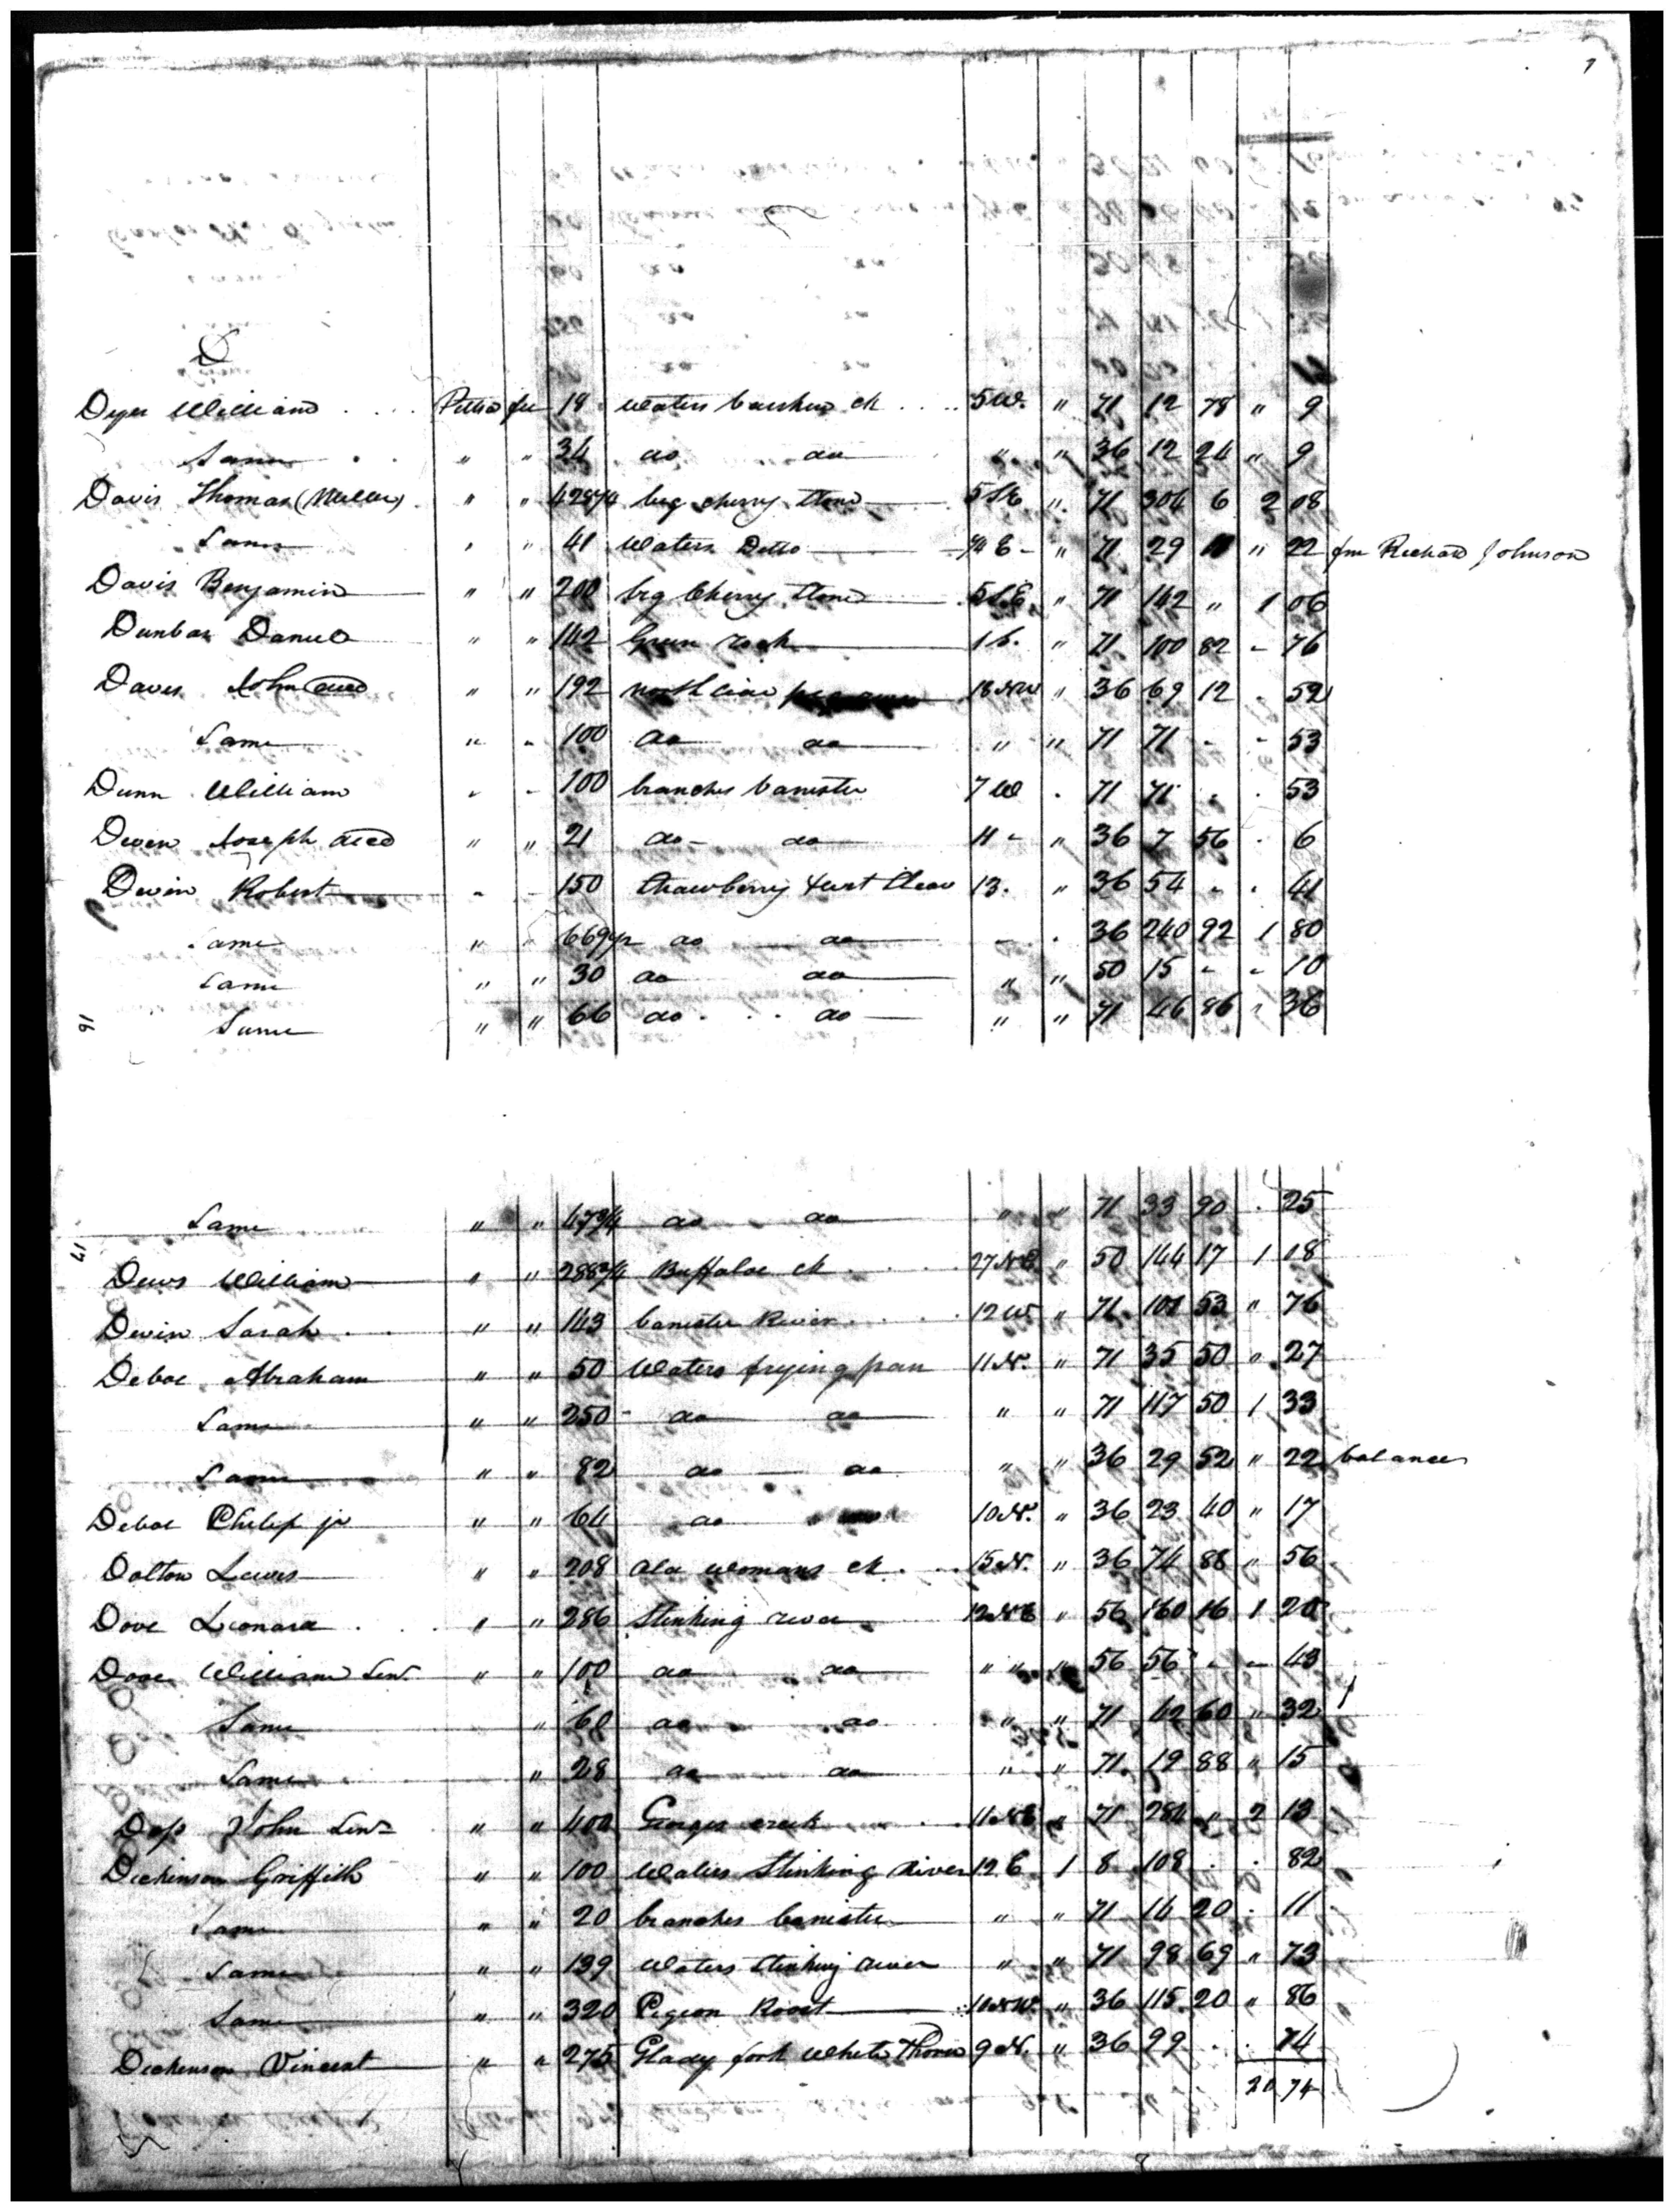 7
D
Dyer William . . . . Pittsa fee 18 Waters banister ck . . . . 5 W. " 71 12 78 " 9
Same . . " " 34 do do " " 36 12 24 " 9
Davis Thomas (Miller) . " " 428 3/4 big cherry stone 5 S E " 71 304 6 2 08
Same " " 41 Waters Ditto E - " 71 29 " 22 fm Richard Johnson
Davis Benjamin " " 200 big Cherry Stone 5 S.E " 71 142 " 1 06
Dunbar Daniel " " 142 Green rock 16. " 71 100 82 - 76
Davis John decd " " 192 north side 18 NW " 36 69 12 . 52
Same " " 100 do do " " 71 71 - - 53
Dunn William " - 100 branches banister 7 W . 71 71 . . 53
Devin Joseph decd " " 21 do - do 11 - " 36 7 56 . 6
Devin Robert - - 150 Strawberry & 13. " 36 54 - . 41
Same " " 669 1/2 do do - . 36 240 92 1 80
Same " " 30 do do " " 50 15 - - 10
16 Same " " 66 do . . . do " " 71 46 86 " 36
Same " " 47 3/4 do do " " 71 33 90 . 25
17
Dews William " " 288 3/4 Buffaloe ck . . . 27 NE " 50 144 17 1 08
Devin Sarah . . . " " 143 banister River . . . . 12 W. " 71 101 53 " 76
Deboe Abraham " " 50 Waters frying pan 11 N. " 71 35 50 " 27
Same " " 250 do do " " 71 117 50 1 33
Same " " 82 do do " " 36 29 52 " 22 balance
Deboe Philip jr " " 64 do 10 N. " 36 23 40 " 17
Dalton Lewis " " 208 Old womans ck . . . 15 N. " 36 74 88 " 56
Dove Leonard . . . " " 286 Stinking river 12 NE " 56 160 16 1 20
Dove William Senr " " 100 do do " " " 56 56 - - 43
Same " 60 do do " " 71 42 60 " 32
Same " 28 do do " " 71 19 88 " 15
Doss John Senr " " 400 Georges creek . . 11 NE " 71 284 " 2 13
Dickinson Griffith " " 100 Waters Stinking River 12 E 1 8 108 . . 82
Same " " 20 branches banister " " 71 14 20 . 11
Same " " 139 Waters Stinking river " " 71 98 69 " 73
Same " " 320 Pigeon Roost 10 NW. " 36 115 20 " 86
Dickenson Vincent " " 275 Glady fork White Thorn 9 N. " 36 99 . . 74
20 74